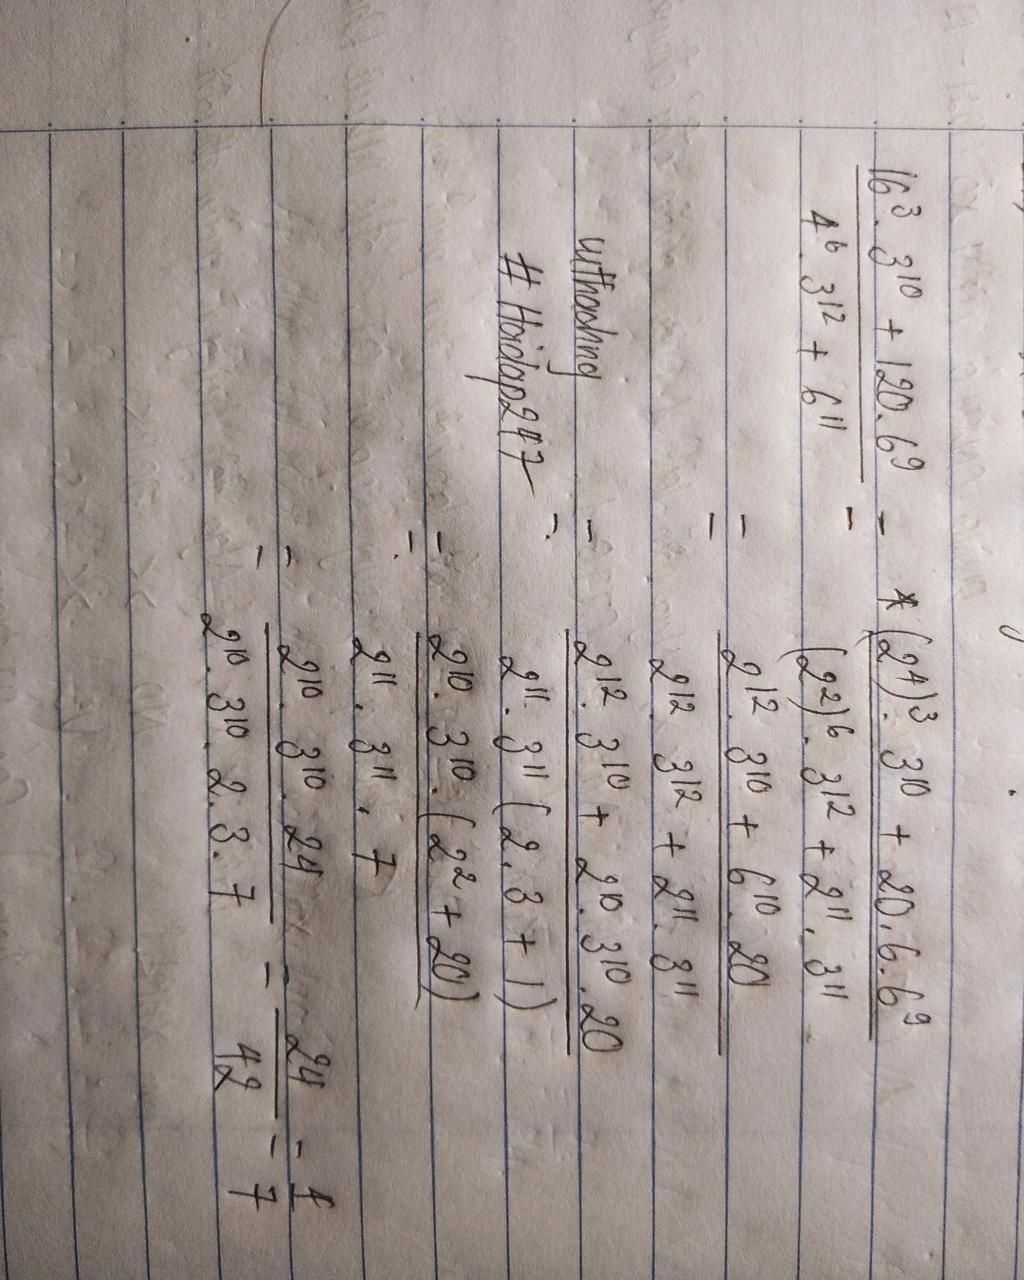 16³. 3¹⁰ + 120. 6⁹ / 4⁶. 3¹² + 6¹¹ = (2⁴)³. 3¹⁰ + 20. 6. 6⁹ / (2²)⁶. 3¹² + 2¹¹. 3¹¹
= 2¹². 3¹⁰ + 6¹⁰. 20 / 2¹². 3¹² + 2¹¹. 3¹¹
= 2¹². 3¹⁰ + 2¹⁰. 3¹⁰. 20 / 2¹¹. 3¹¹ (2. 3 + 1)
# Hoidap247
= 2¹⁰. 3¹⁰. (2² + 20) / 2¹¹. 3¹¹. 7
= 2¹⁰. 3¹⁰. 24 / 2¹⁰. 3¹⁰. 2. 3. 7 = 24 / 42 = 4 / 7